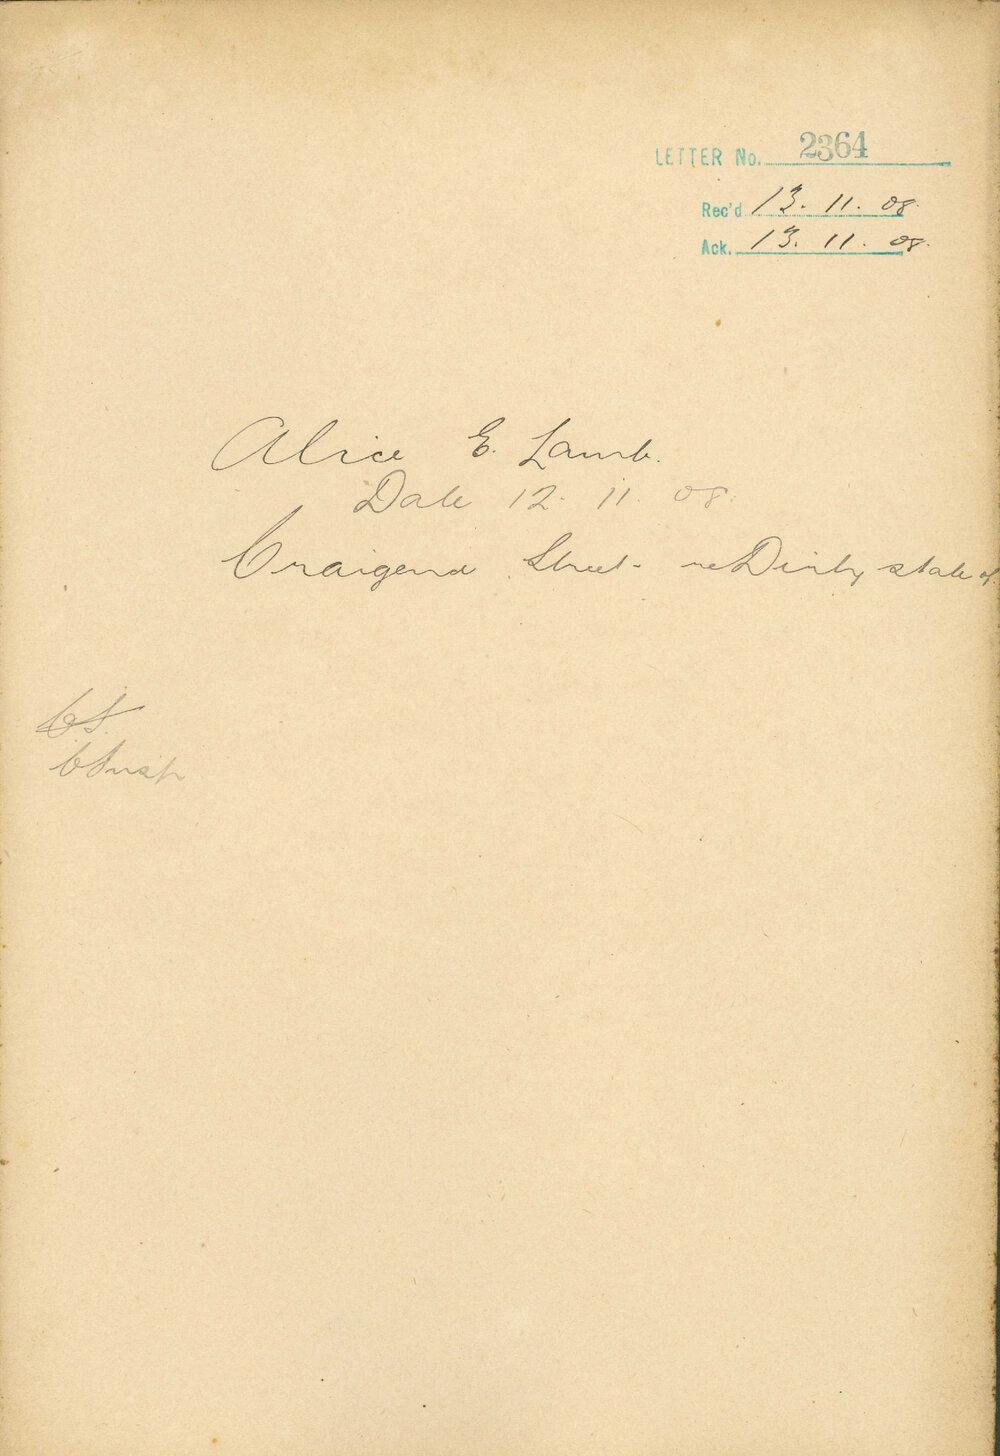 LETTER No. 2364
Rec'd 13. 11. 08.
Ack. 13. 11. 08.
Alice E. Lamb.
Date 12. 11. 08.
Craigend Street - re Dirty state of.
C.S.